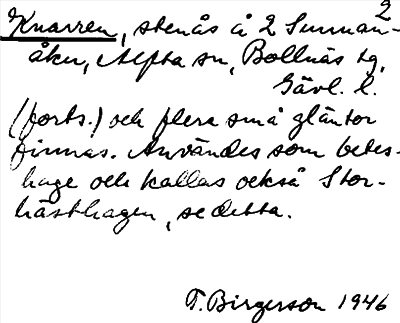 2
Knarren, stenås å 2 Sunnan-
åker, Alfta sn, Bollnäs tg,
Gävl. l.
(forts.) och flera små gläntor
finnas. Användes som betes-
hage och kallas också Stor-
hästhagen, se detta.
T. Birgerson 1946